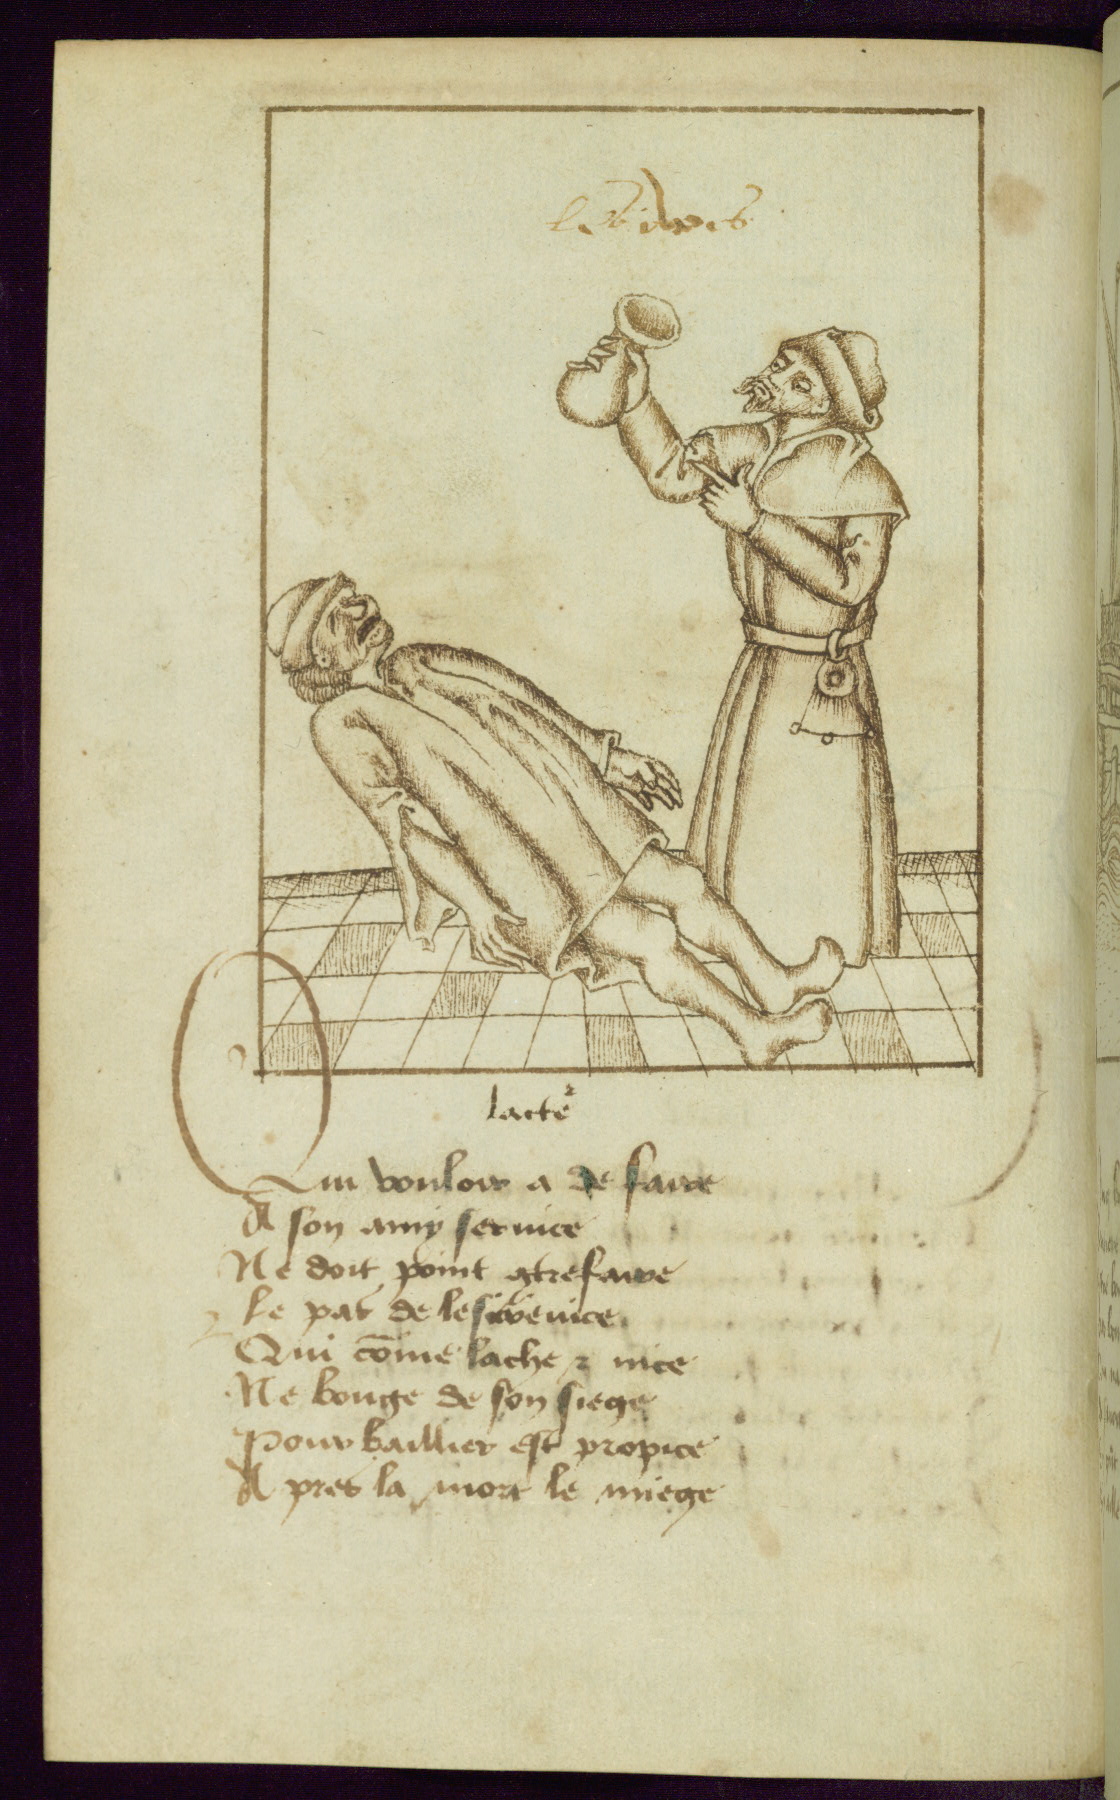 lacte᷑
Qui vouloir a de faire
A son amy seruice
Ne doit point 9trefaire
Le pas de lescreuice
Qui cõme lache ⁊ nice
Ne bouge de son siege
Pour baillier est propice
A pres la mort le miege